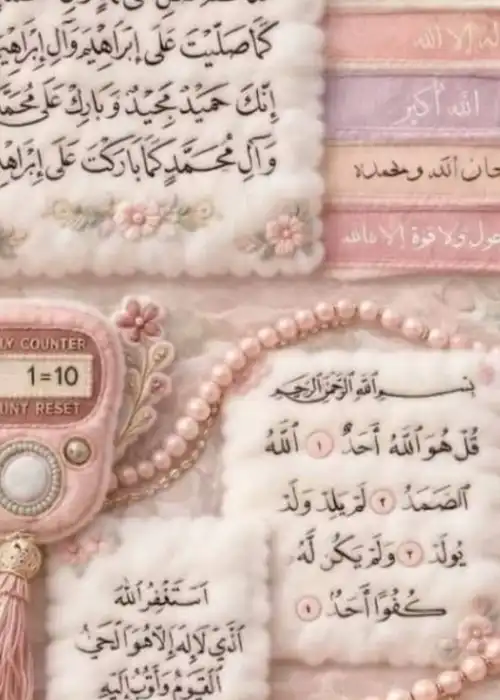 كَمَا صَلَّيْتَ عَلَى إِبْرَاهِيمَ وَآلِ إِبْرَاهِيمَ
إِنَّكَ حَمِيدٌ مَجِيدٌ وَبَارِكْ عَلَى مُحَمَّدٍ
وَآلِ مُحَمَّدٍ كَمَا بَارَكْتَ عَلَى إِبْرَاهِيمَ
له إلا الله
الله أكبر
حان الله وبحمده
حول ولا قوة إلا بالله
LY COUNTER
1=10
UNT RESET
بِسْمِ اللَّهِ الرَّحْمَنِ الرَّحِيمِ
قُلْ هُوَ اللَّهُ أَحَدٌ ١ اللَّهُ
الصَّمَدُ ٢ لَمْ يَلِدْ وَلَمْ
يُولَدْ ٣ وَلَمْ يَكُنْ لَهُ
كُفُوًا أَحَدٌ ٤
أَسْتَغْفِرُ اللَّهَ
الَّذِي لَا إِلَهَ إِلَّا هُوَ الْحَيُّ
الْقَيُّومُ وَأَتُوبُ إِلَيْهِ